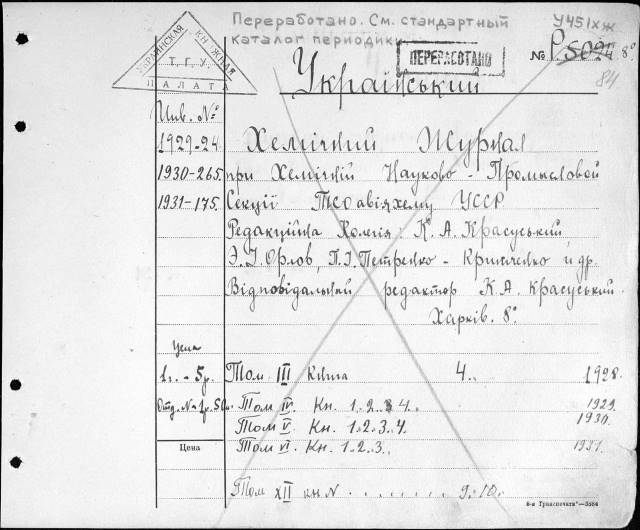 Переработано. См. стандартный
каталог периодики
У451хж
УКРАИНСКАЯ КНИЖНАЯ
Т.Г.У.
ПАЛАТА
ПЕРЕРАБОТАНО
№ Р5024 8°
84
Український
Инв. №
1929-24 Хемічний Журнал
1930-265. при Хемічній Науково - Промысловой
1931-175. Секції Тсоавіяхему УССР
Редакційна Колегія: К. А. Красуський,
Э. І. Орлов, П. І. Петренко - Критченко й др.
Відповідальний редактор К. А. Красуський.
Харків. 8°.
Цена
1г. - 5р. Том III Книга 4. 1928.
Отд. № 1р. 50к. Том IV. Кн. 1. 2. 3 4. 1929.
Том V. Кн. 1. 2. 3. 4. 1930.
Цена Том VI. Кн. 1. 2. 3. 1931.
Том XII кн. № . . . . . . . 9. 10.
6-я Транспечать"—3564